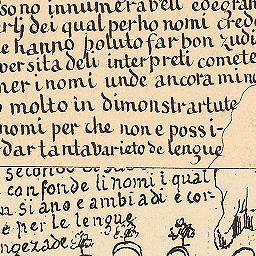 sono innumerabeli edegran
dei qual per ho nomi cred
e hanno poluto far bon zudi
versita deli interpreti comete
ner i nomi unde ancora mino
o molto in dimonstrar tute
nomi per che non e possi-
dar tanta varieto de lengue
secondo
confonde li nomi i qual
si ano e ambiadi e cor-
e per le lengue
ngezade